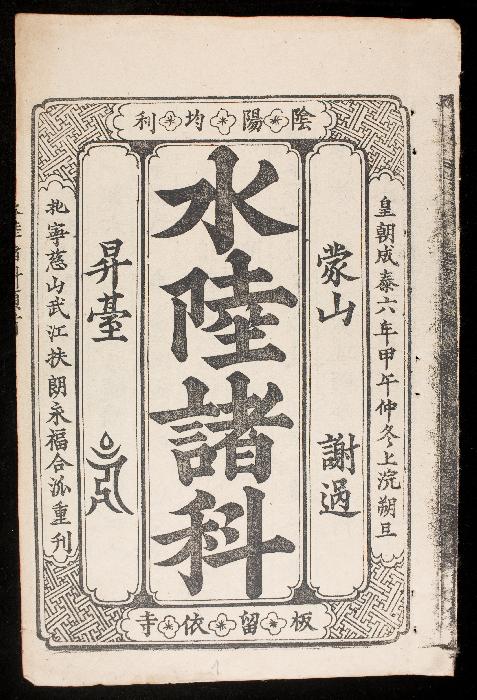 陰陽均利
皇朝成泰六年甲午仲冬上浣朔旦
蒙山 謝過
水陸諸科
昇臺
北寧慈山武江扶朗永福合派重刊
板留依寺